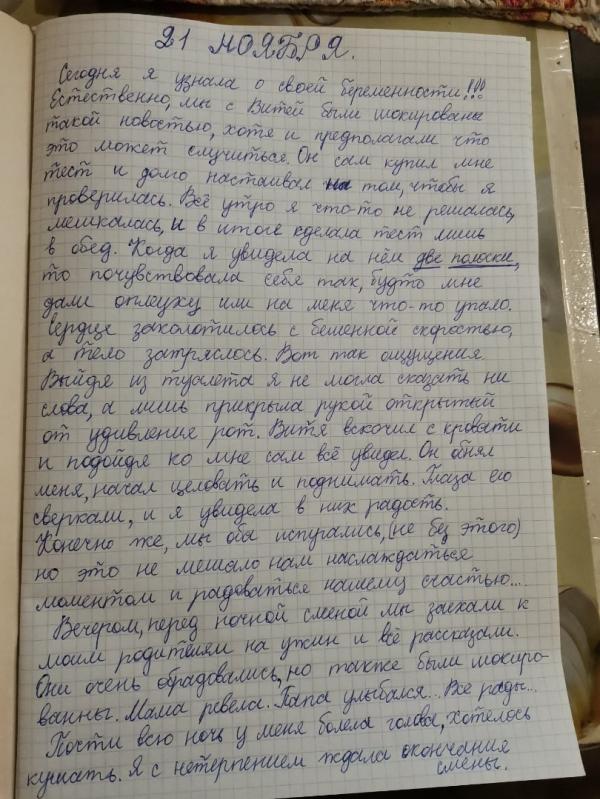 21 НОЯБРЯ.
Сегодня я узнала о своей беременности!!!
Естественно, мы с Витей были шокированы
такой новостью, хотя и предполагали что
это может случиться. Он сам купил мне
тест и долго настаивал на том, чтобы я
проверилась. Всё утро я что-то не решалась,
мешкалась, и в итоге сделала тест лишь
в обед. Когда я увидела на нём две полоски,
то почувствовала себя так, будто мне
дали оплеуху или на меня что-то упало.
Сердце заколотилось с бешенной скоростью,
а тело затряслось. Вот так ощущения.
Выйдя из туалета я не могла сказать ни
слова, а лишь прикрыла рукой открытый
от удивления рот. Витя вскочил с кровати
и подойдя ко мне сам всё увидел. Он обнял
меня, начал целовать и поднимать. Глаза его
сверкали, и я увидела в них радость.
Конечно же, мы оба испугались, (не без этого)
но это не мешало нам наслаждаться
моментом и радоваться нашему счастью...
Вечером, перед ночной сменой мы заехали к
моим родителям на ужин и всё рассказали.
Они очень обрадовались, но также были шокиро-
ванны. Мама ревела. Папа улыбался... Все рады...
Почти всю ночь у меня болела голова, хотелось
кушать. Я с нетерпением ждала окончания
смены.